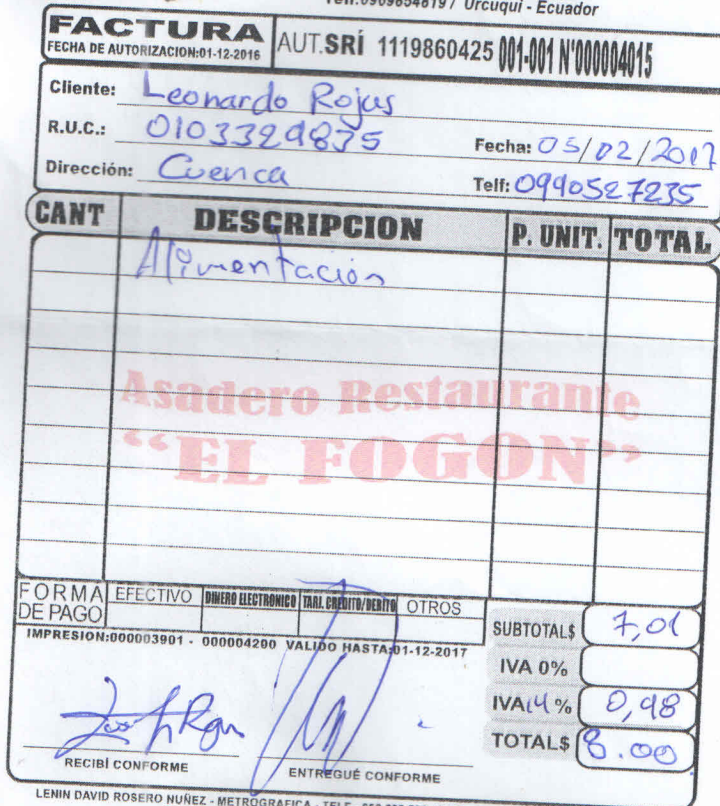 Urcuqui - Ecuador
FACTURA
FECHA DE AUTORIZACION:01-12-2016
AUT.SRÍ 1119860425 001-001 N°000004015
Cliente: Leonardo Rojas
R.U.C.: 0103329835
Fecha: 05/02/2017
Dirección: Cuenca
Telf: 0990527235
CANT DESCRIPCION P. UNIT. TOTAL
Alimentación
Asadero Restaurante
“EL FOGON”
FORMA DE PAGO
EFECTIVO DINERO ELECTRONICO TARJ. CREDITO/DEBITO OTROS
IMPRESION:000003901 - 000004200 VALIDO HASTA:01-12-2017
SUBTOTAL$ 7,01
IVA 0%
IVA 14 % 0,98
TOTAL$ 8.00
RECIBÍ CONFORME
ENTREGUÉ CONFORME
LENIN DAVID ROSERO NUÑEZ - METROGRAFICA - TELF.